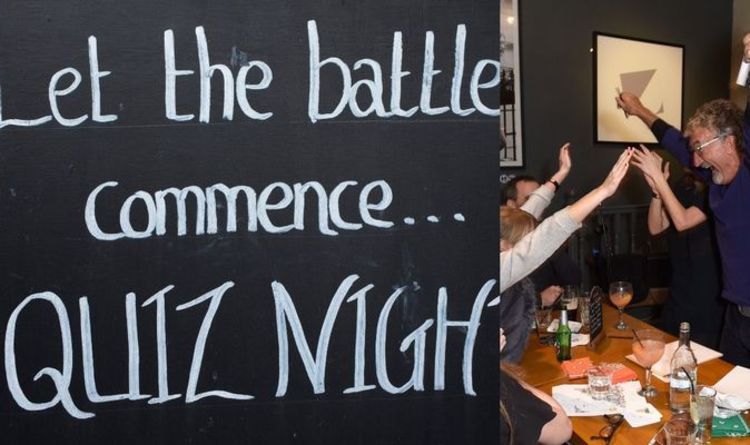 Let the battle
commence...
QUIZ NIGHT